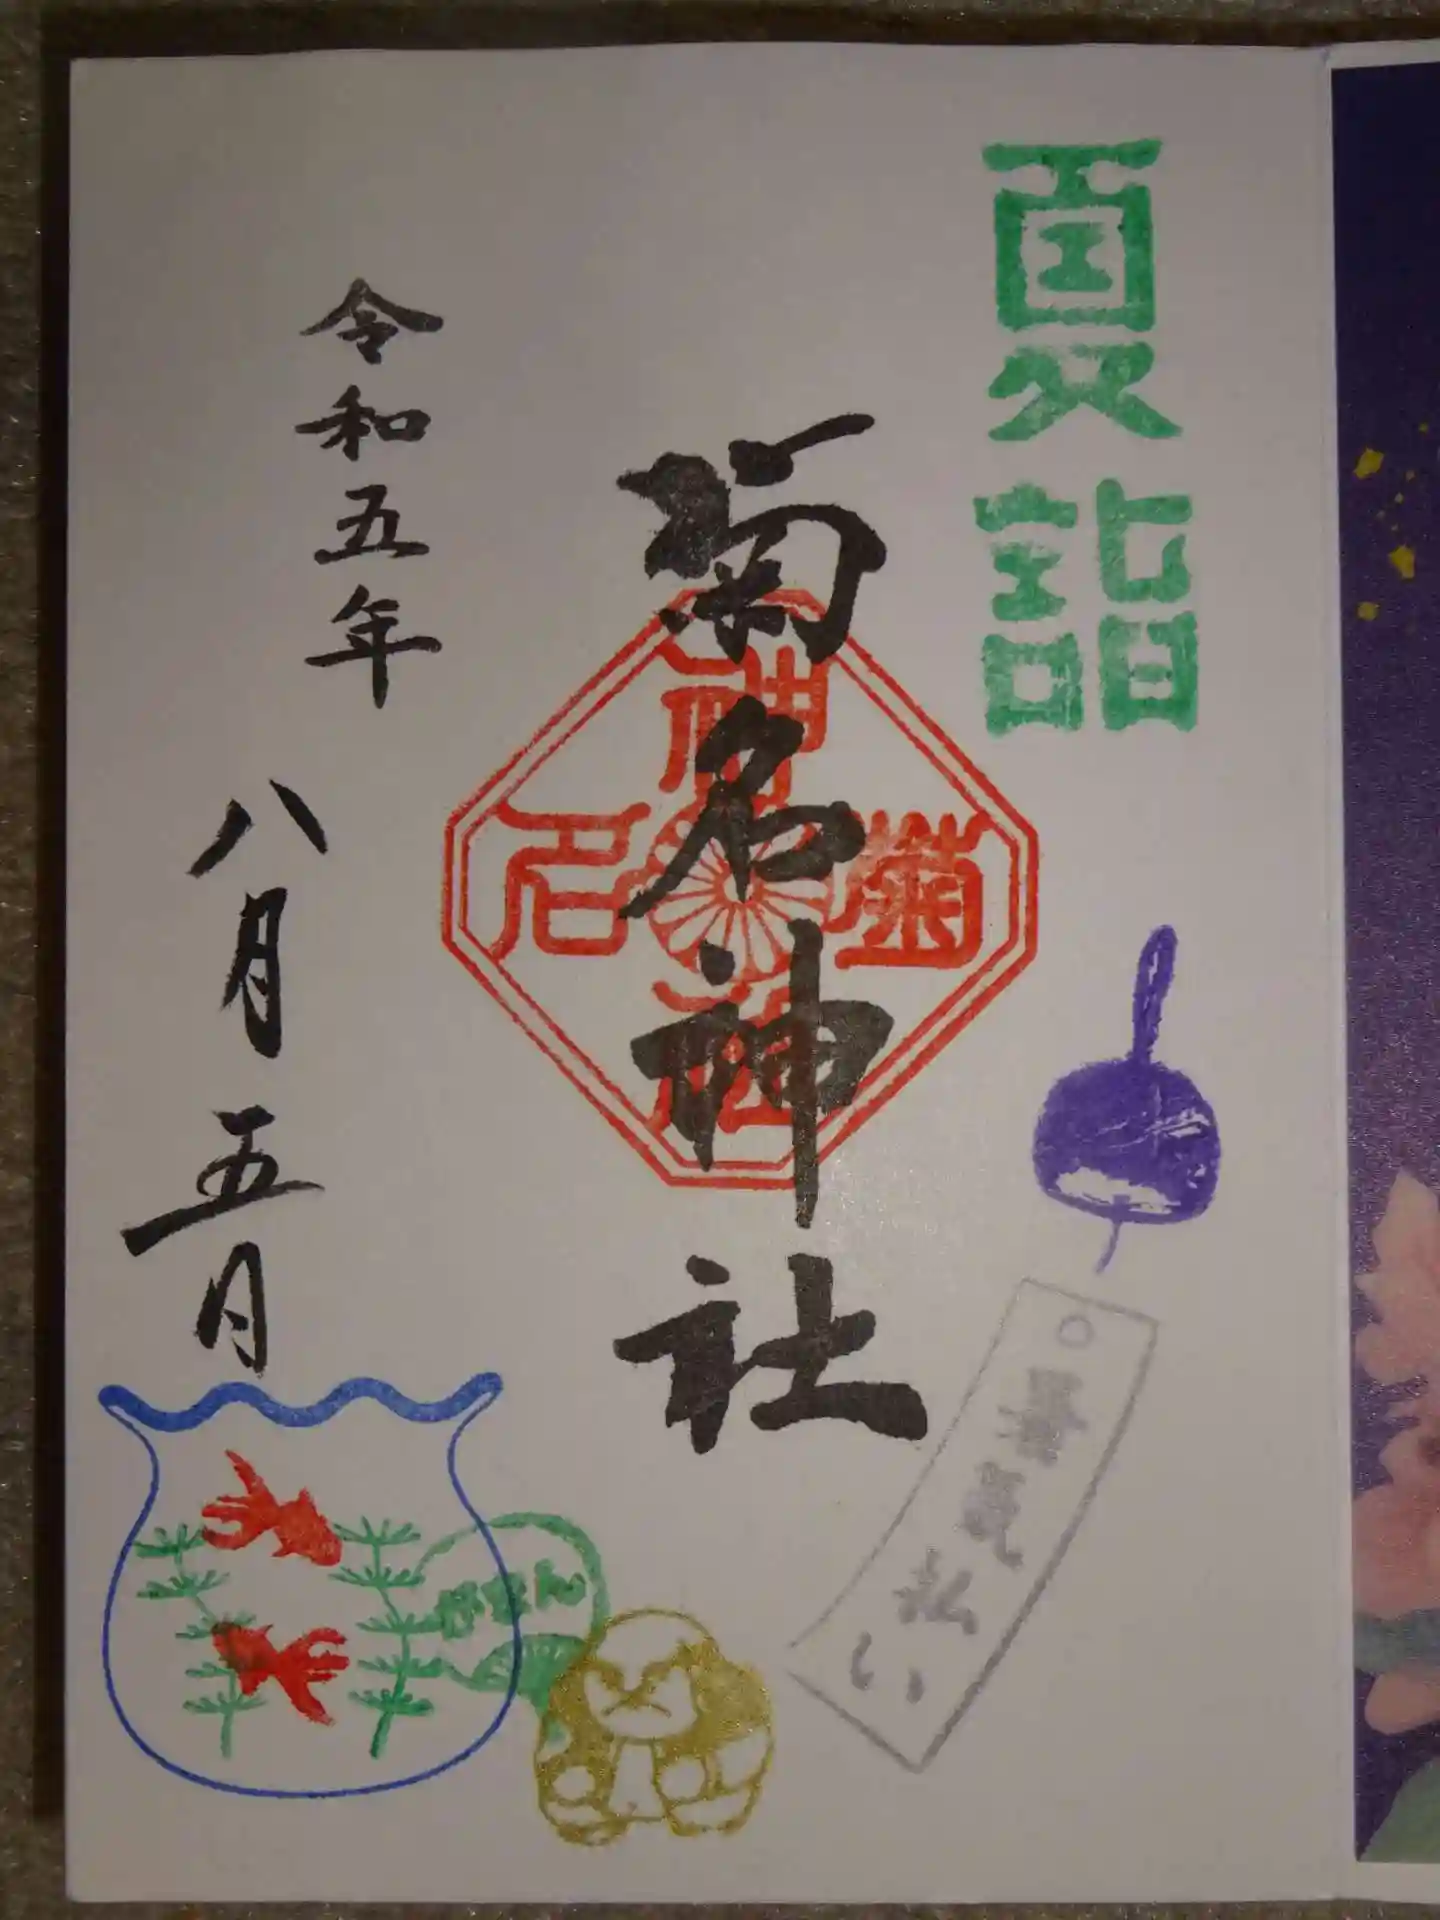 夏詣
暑気払い
菊名神社
神
菊
名
社
がまんさま
令和五年
八月五日